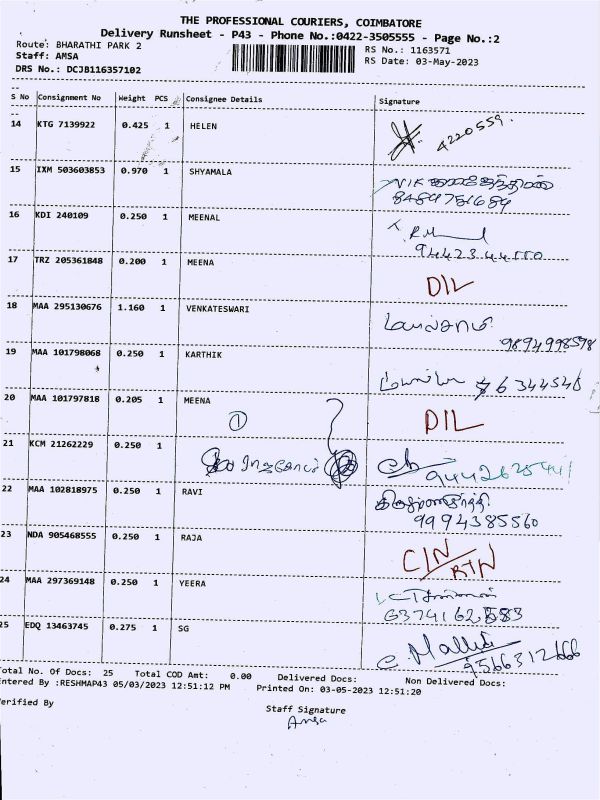 THE PROFESSIONAL COURIERS, COIMBATORE
Delivery Runsheet - P43 - Phone No.:0422-3505555 - Page No.:2
Route: BHARATHI PARK 2 RS No.: 1163571
Staff: AMSA RS Date: 03-May-2023
DRS No.: DCJB116357102
S No Consignment No Weight PCS Consignee Details Signature
14 KTG 7139922 0.425 1 HELEN 4220559.
15 IXM 503603853 0.970 1 SHYAMALA
8489781689
16 KDI 240109 0.250 1 MEENAL
17 TRZ 205361848 0.200 1 MEENA DIL
18 MAA 295130676 1.160 1 VENKATESWARI
9894998598
19 MAA 101798068 0.250 1 KARTHIK 6344546
20 MAA 101797818 0.205 1 MEENA DIL
1
21 KCM 21262229 0.250 1
22 MAA 102818975 0.250 1 RAVI
9994385560
23 NDA 905468555 0.250 1 RAJA CIN/RTN
24 MAA 297369148 0.250 1 YEERA
25 EDQ 13463745 0.275 1 SG
9566312666
Total No. Of Docs: 25 Total COD Amt: 0.00 Delivered Docs: Non Delivered Docs:
Entered By :RESHMAP43 05/03/2023 12:51:12 PM Printed On: 03-05-2023 12:51:20
Verified By Staff Signature
Amsa